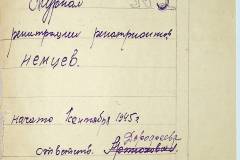 Журнал
регистрации репатриантов
немцев.
начато 1 сентября 1945 г
Дородеева
ответств.